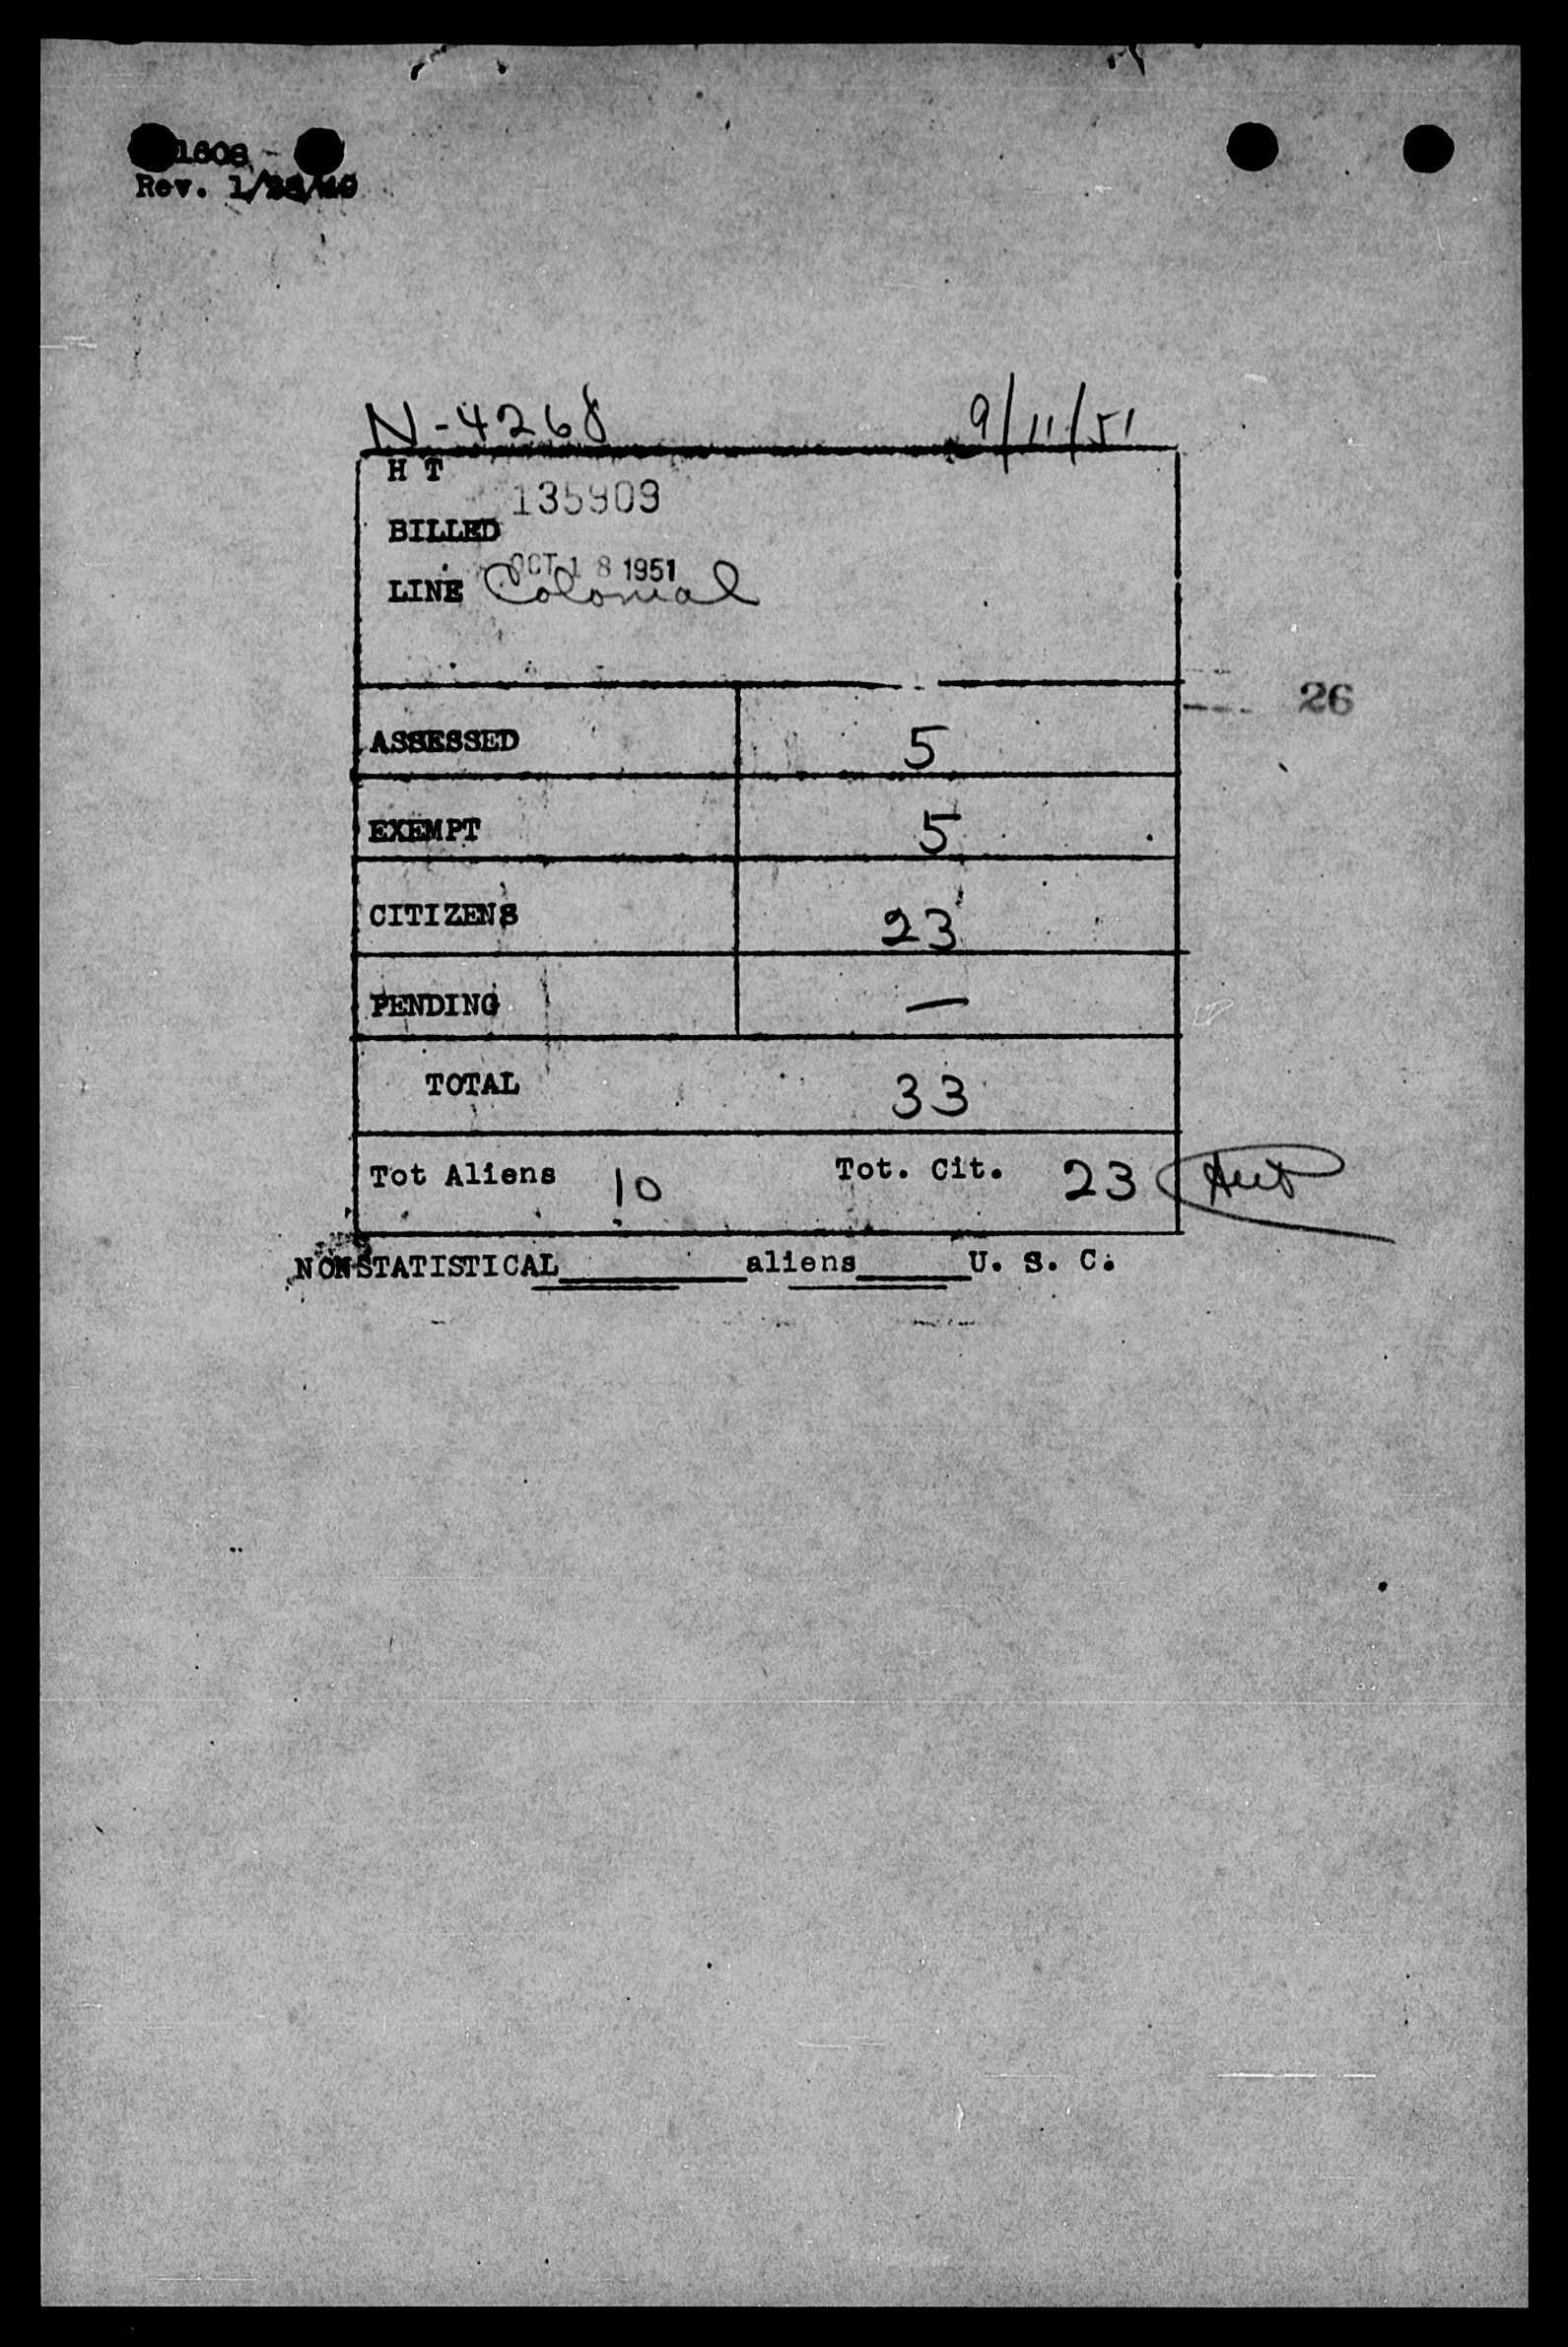 1608
Rev. 1/28/49
N-4268 9/11/51
H T
135909
BILLED
OCT 18 1951
LINE Colonial
26
ASSESSED 5
EXEMPT 5
CITIZENS 23
PENDING —
TOTAL 33
Tot Aliens 10 Tot. Cit. 23
NONSTATISTICAL________aliens_____U. S. C.